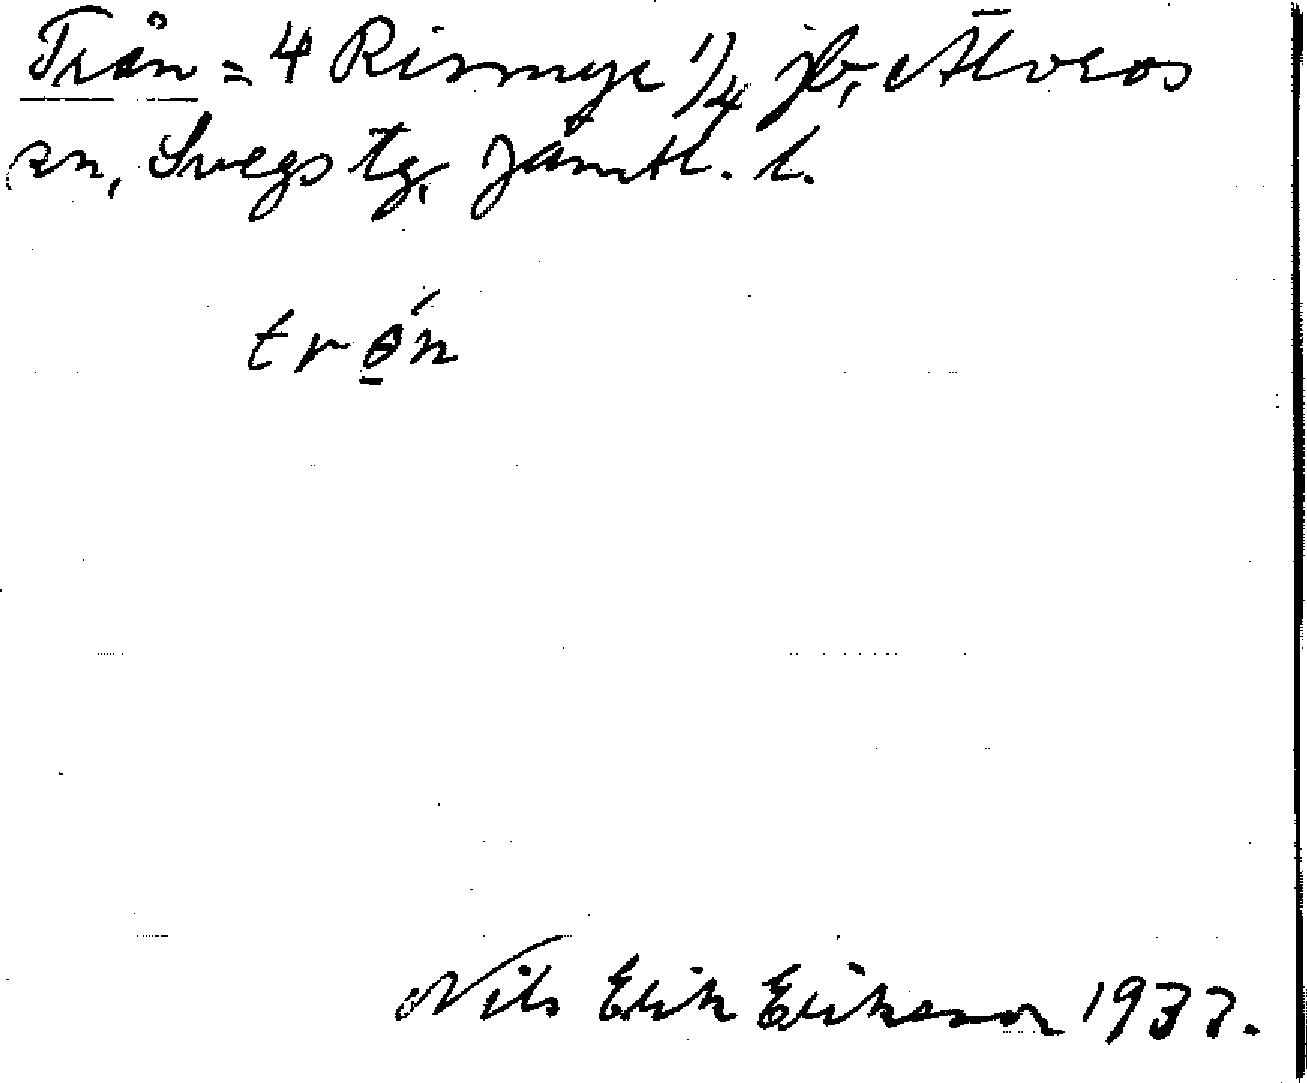 Trån = 4 Rismyr 1/4 jb, Älvros
sn, Svegs tg, Jämtl. l.
trǫ́n
Nils Erik Eriksson 1937.